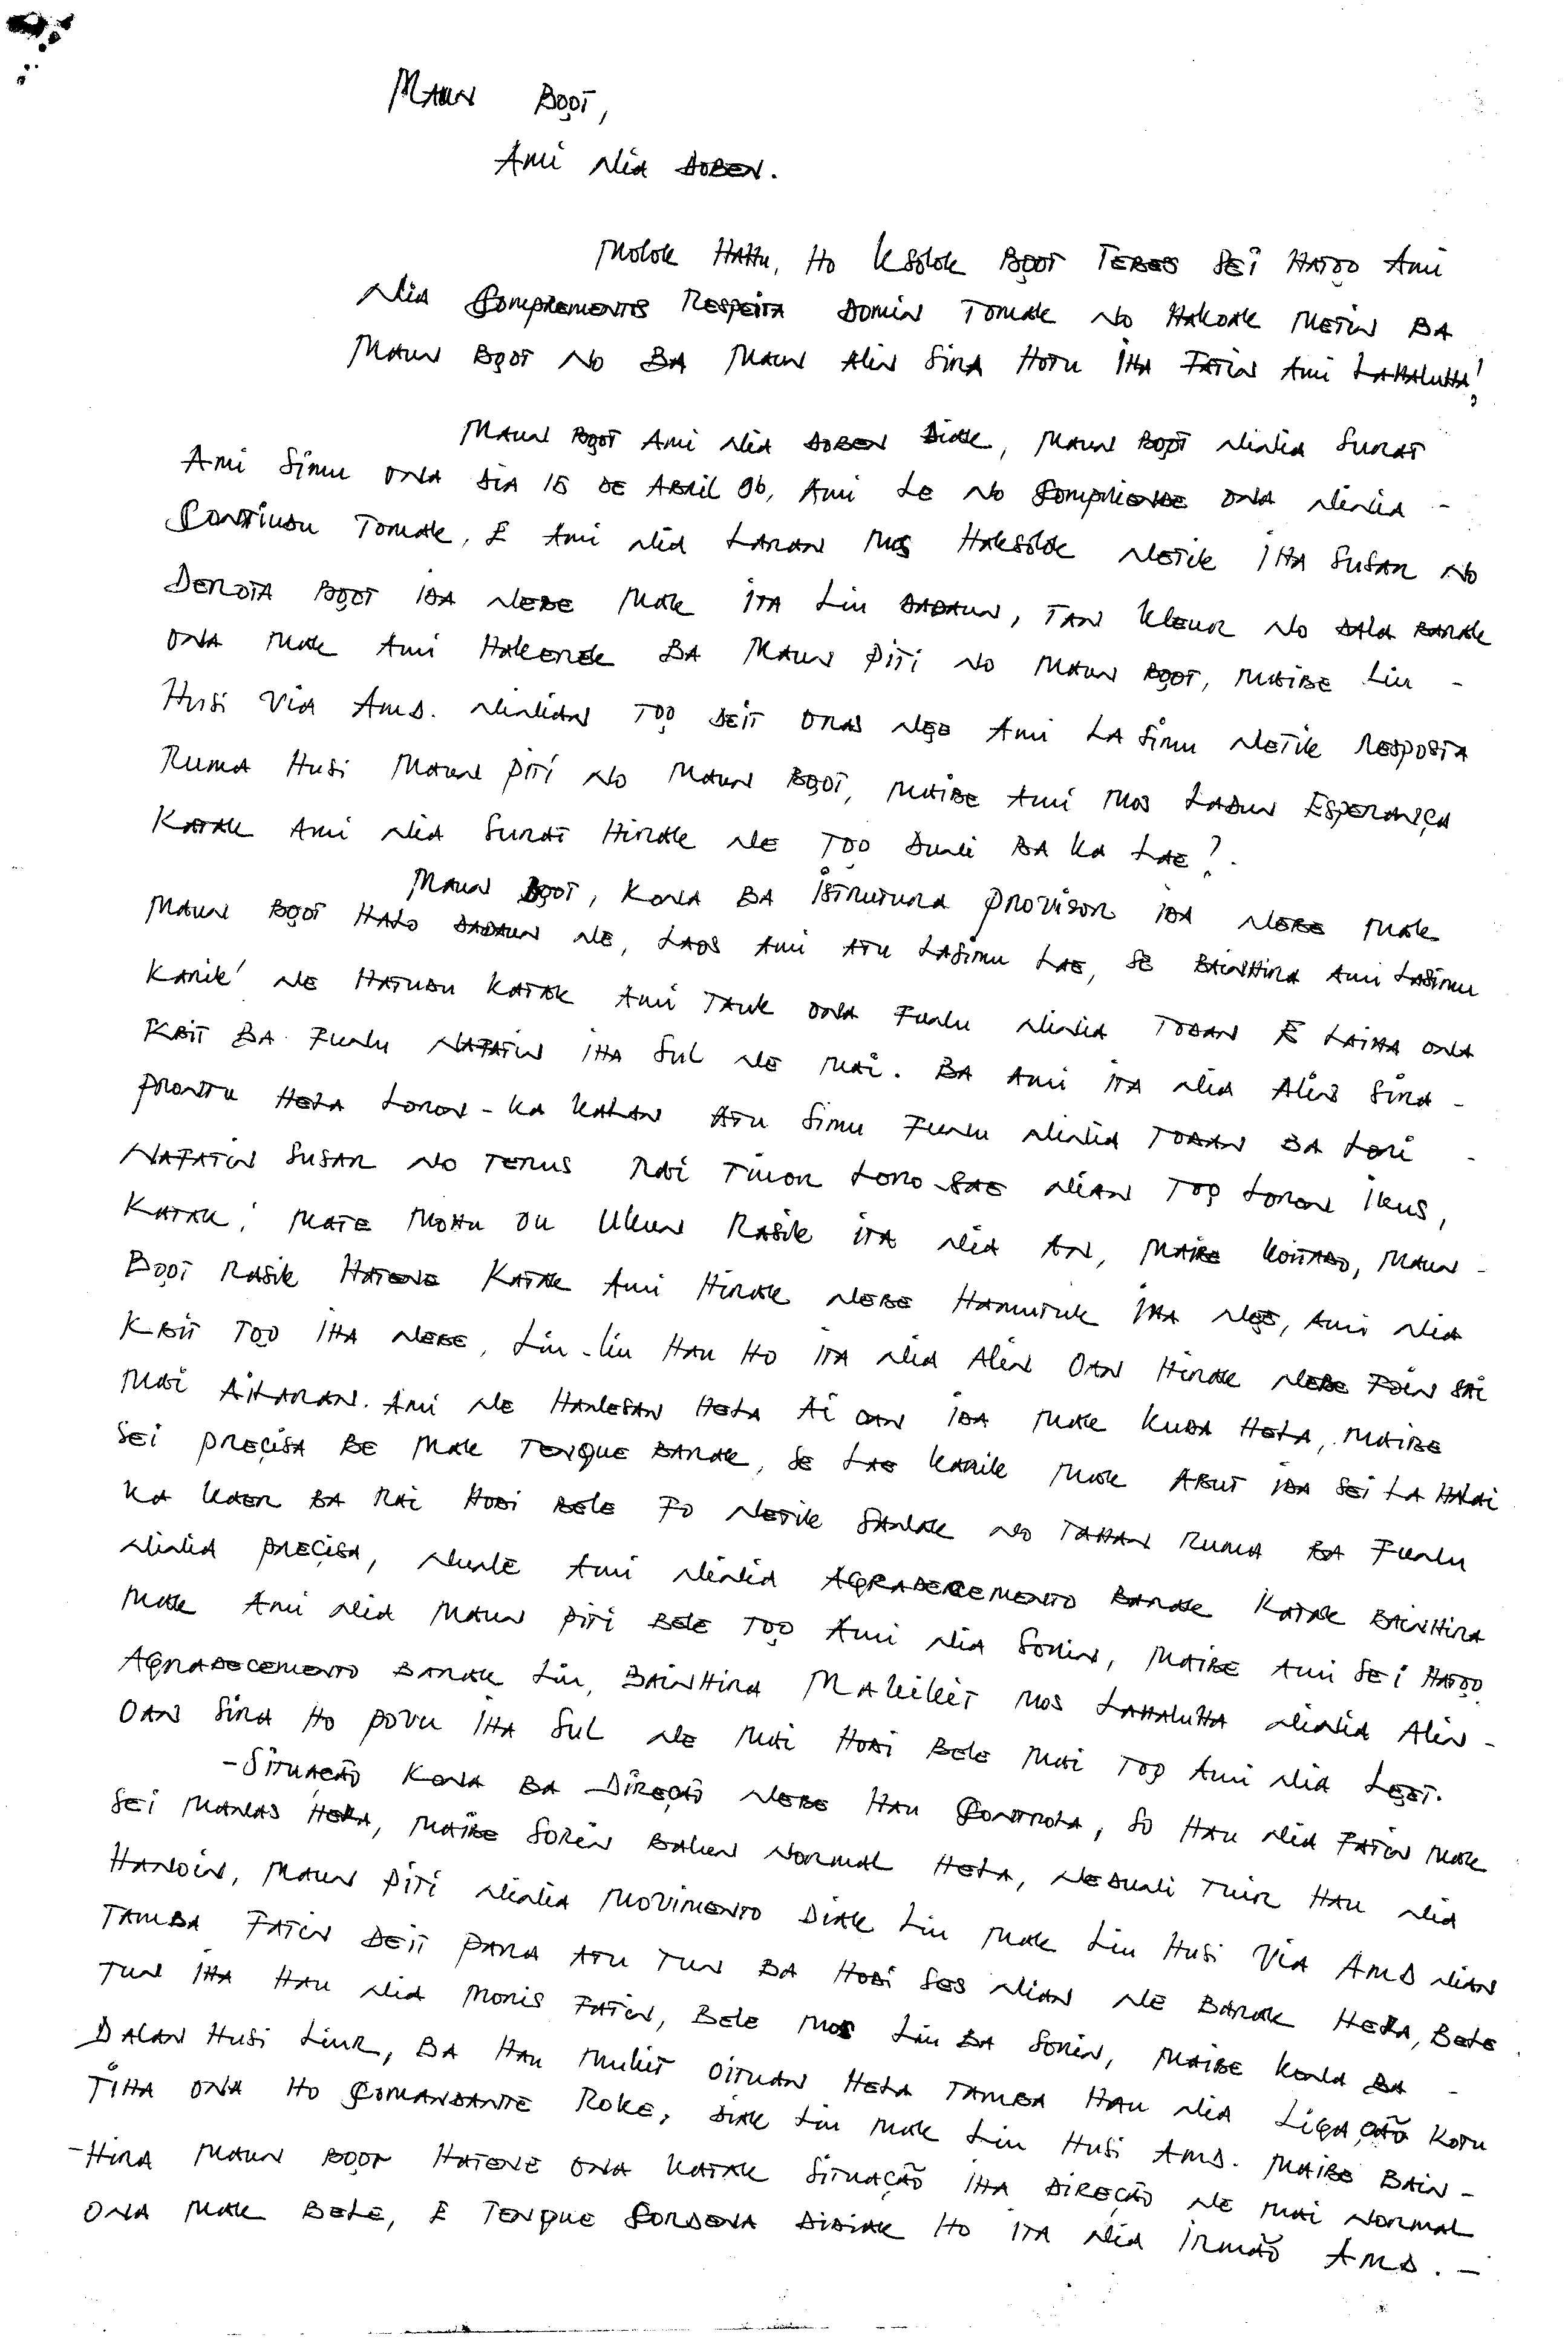 Maun Bo̧ot,
Ami nia doben.
Molok Hahu, Ho Ksolok Bo̧ot Tebes Sei Hato̧o Ami
nia Comprementos Respeita Domin Tomak no Hakoak Metin ba
Maun Bo̧ot no ba Maun Alin Sira Hotu iha Fatin Ami Lahaluha!
Maun Bo̧ot Ami nia doben diak, Maun Bo̧ot ninia Surat
Ami Simu ona dia 15 de Abril 96, Ami le no Compriende ona ninia -
Contiudu Tomak, E Ami nia Laran Mos Haksolok netik iha Susar no
Derota Bo̧ot ida nebe Mak ita Liu dadaun, Tan Kleur no dala barak
ona Mak Ami Hakerek ba Maun Piti no Maun Bo̧ot, Maibe Liu -
Husi Via Amd. ninian To̧o deit oras nȩe Ami La Simu netik Resposta
Ruma Husi Maun Piti no Maun Bo̧ot, Maibe Ami Mos Ladun Esperança
Katak Ami nia Surat Hirak ne To̧o duni ba ka Lae?.
Maun Bo̧ot, Kona ba istrutura Provisor ida nebe Mak
Maun Bo̧ot Halo dadaun ne, Laos Ami atu Lasimu Lae, Se Bainhira Ami Lasimu
Karik! ne Hatudu Katak Ami Tauk ona Funu ninia Todan E Laiha ona
Kbit ba Funu nafatin iha Sul ne Mai. Ba Ami ita nia Alin Sira -
Prontu Hela Loron-ka Kalan atu Simu Funu ninia Todan ba Lori -
nafatin Susar no Terus Rai Timor Loro Sae nian To̧o Loron ikus,
Katak! Mate Mohu ou Ukun Rasik ita nia an, Maibe Koitado, Maun -
Bo̧ot Rasik Hatene Katak Ami Hirak nebe Hamutuk iha nȩe, Ami nia
Kbit To̧o iha nebe, Liu-liu Hau Ho ita nia Alin Oan Hirak nebe Foin Sai
Mai Ailaran. Ami ne Hanesan Hela Ai oan ida Mak Kuda Hela, Maibe
Sei Precisa Be Mak Tenque Barak, Se Lae Karik Mak Abut ida Sei La Halai
ka Kaer ba Rai Hodi Bele Fo netik Sanak no Tahan Ruma ba Funu
ninia Precisa, nune Ami ninia Agradecemento Barak Katak Bainhira
Mak Ami nia Maun Piti Bele To̧o Ami nia Sorin, Maibe Ami Sei Hato̧o
Agradecemento Barak Liu, Bainhira Makikit Mos Lahaluha ninia Alin -
Oan Sira Ho Povu iha Sul ne Mai Hodi Bele Mai To̧o Ami nia Lȩet.
- Situação Kona ba Direção nebe Hau Controla, So Hau nia Fatin Mak
Sei Manas Hela, Maibe Sorin Balun Normal Hela, neduni Tuir Hau nia
Hanoin, Maun Piti ninia Movimento Diak Liu Mak Liu Husi Via Amd nian
Tamba Fatin Deit Para atu Tun ba Hodi Ses nian ne Barak Hela, Bele
Tun iha Hau nia Moris Fatin, Bele Mos Liu ba Sorin, Maibe Kona ba -
Dalan Husi Liur, Ba Hau Mukit oituan Hela Tamba Hau nia Ligação Kotu
Tiha ona Ho Comandante Roke, diak Liu Mak Liu Husi Amd. Maibe Bain -
-Hira Maun Bo̧ot Hatene ona Katak Situação iha Direção ne Mai Normal
ona Mak Bele, E Tenque Cordena didiak Ho ita nia irmão Amd. -